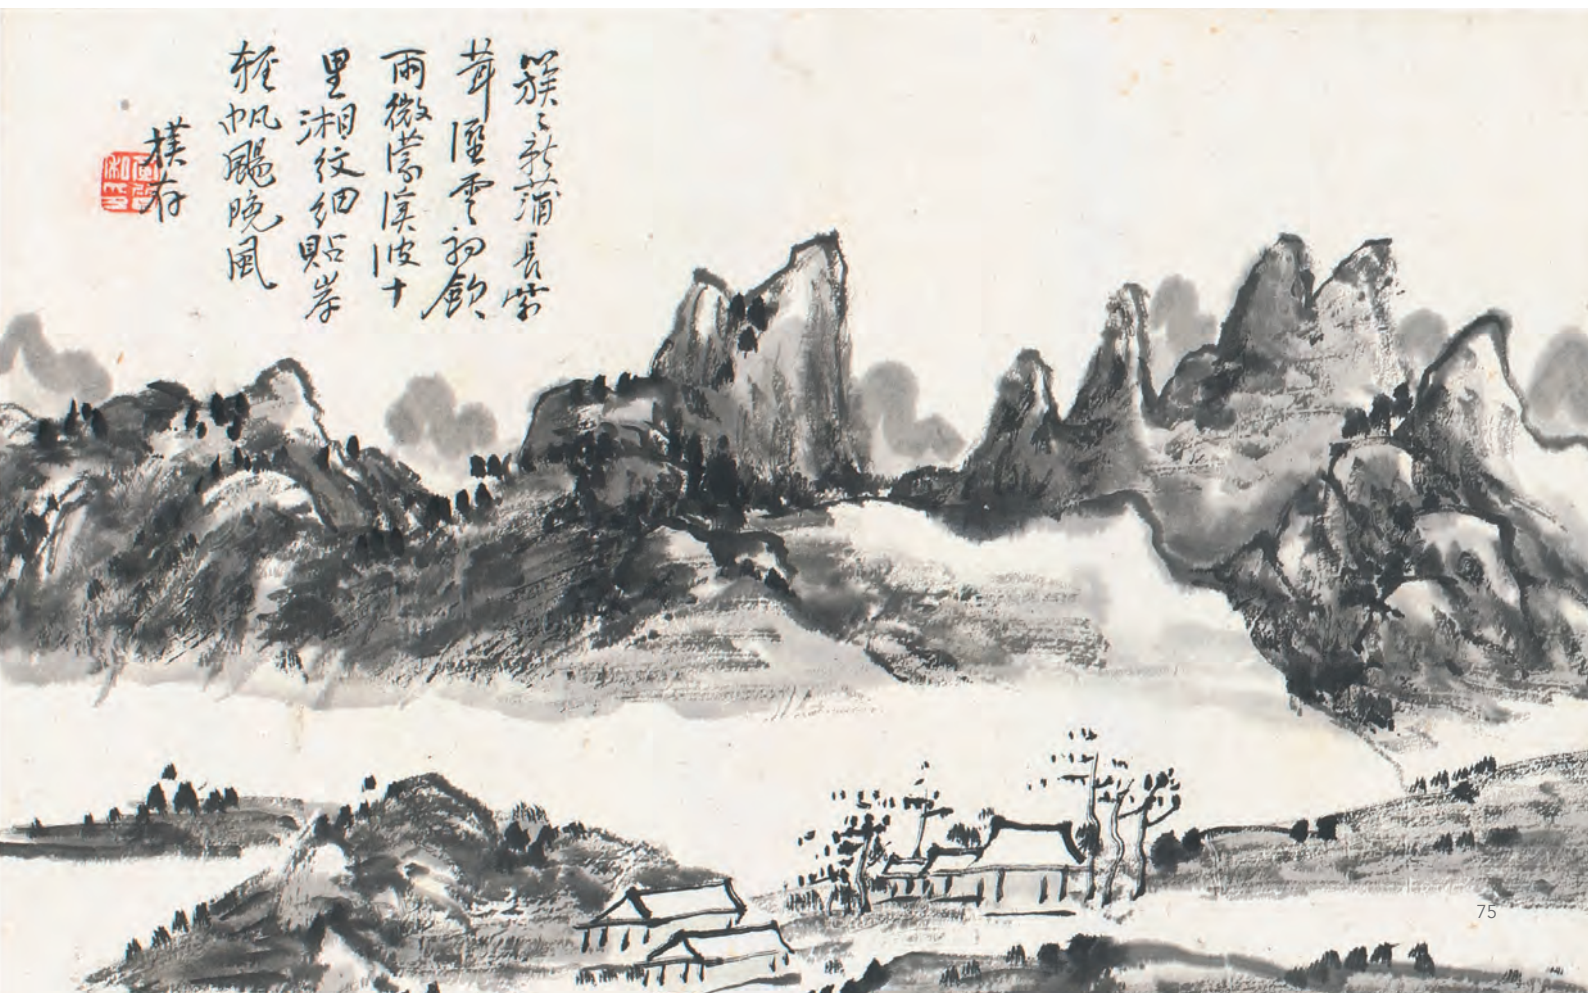 簇〻新蒲長紫
茸溼雲初斂
雨微濛溪波十
里湘紋細貼岸
輕帆颺晚風
樸存
75